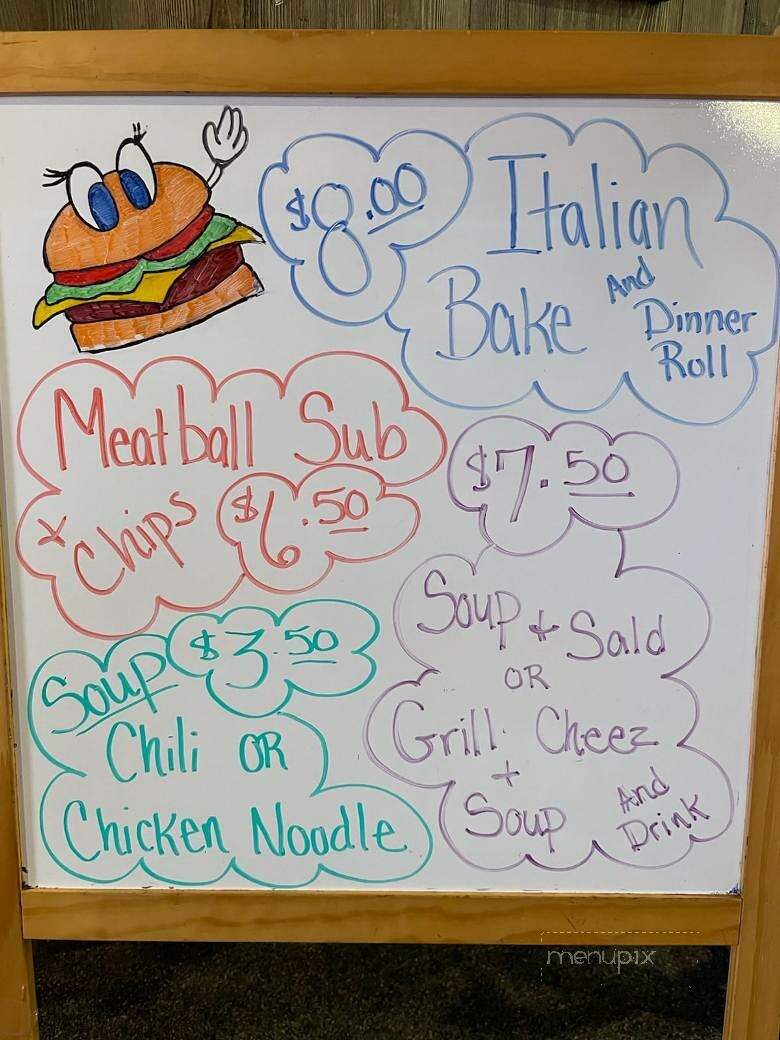 $8.00
Italian
Bake And Dinner
Roll
Meatball Sub
+ Chips $6.50
$7.50
Soup + Sald
OR
Grill Cheez
+
Soup And
Drink
Soup $3.50
Chili OR
Chicken Noodle
menupix